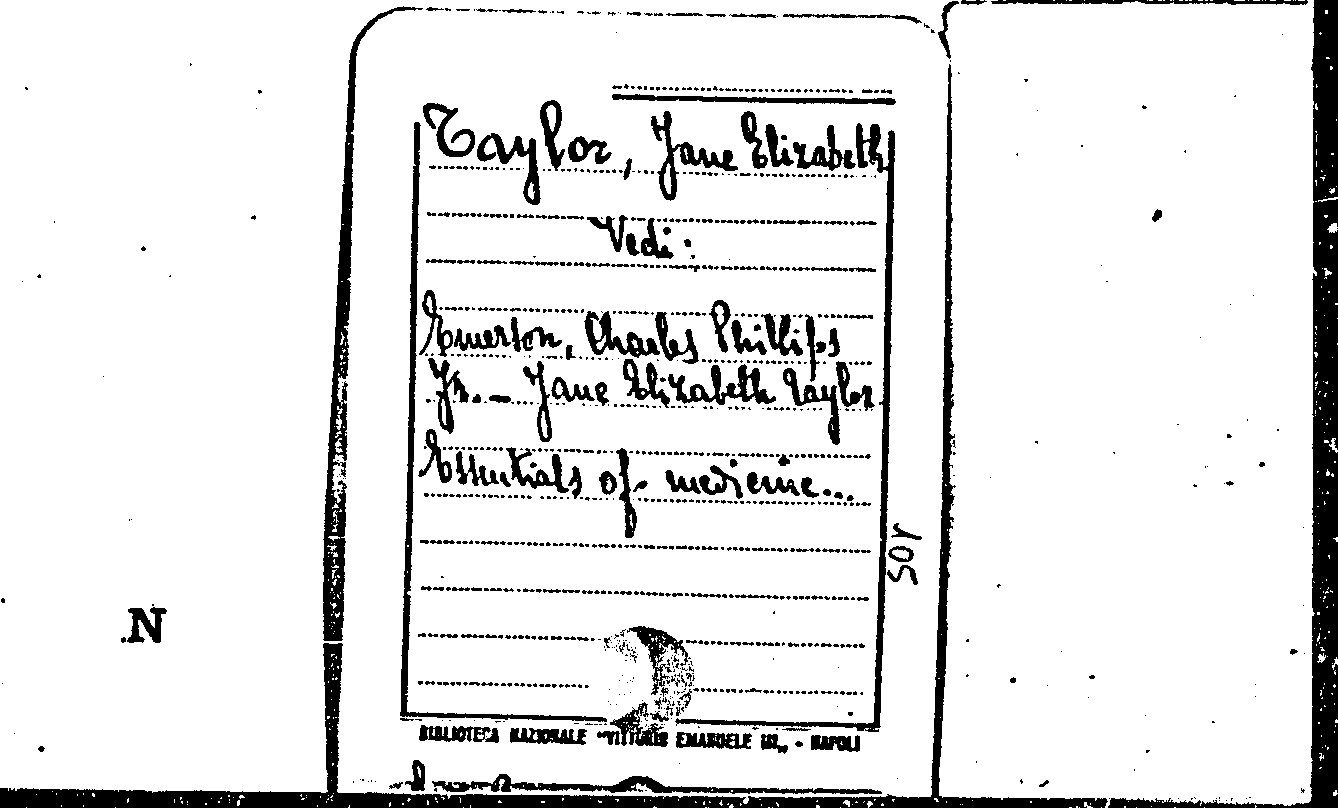 Taylor, Jane Elizabeth
Vedi:
Emerson, Charles Phillips
Jr. – Jane Elizabeth Taylor.
Essentials of medicine...
SOY
N
BIBLIOTECA NAZIONALE "VITTORIO EMANUELE III„ - NAPOLI